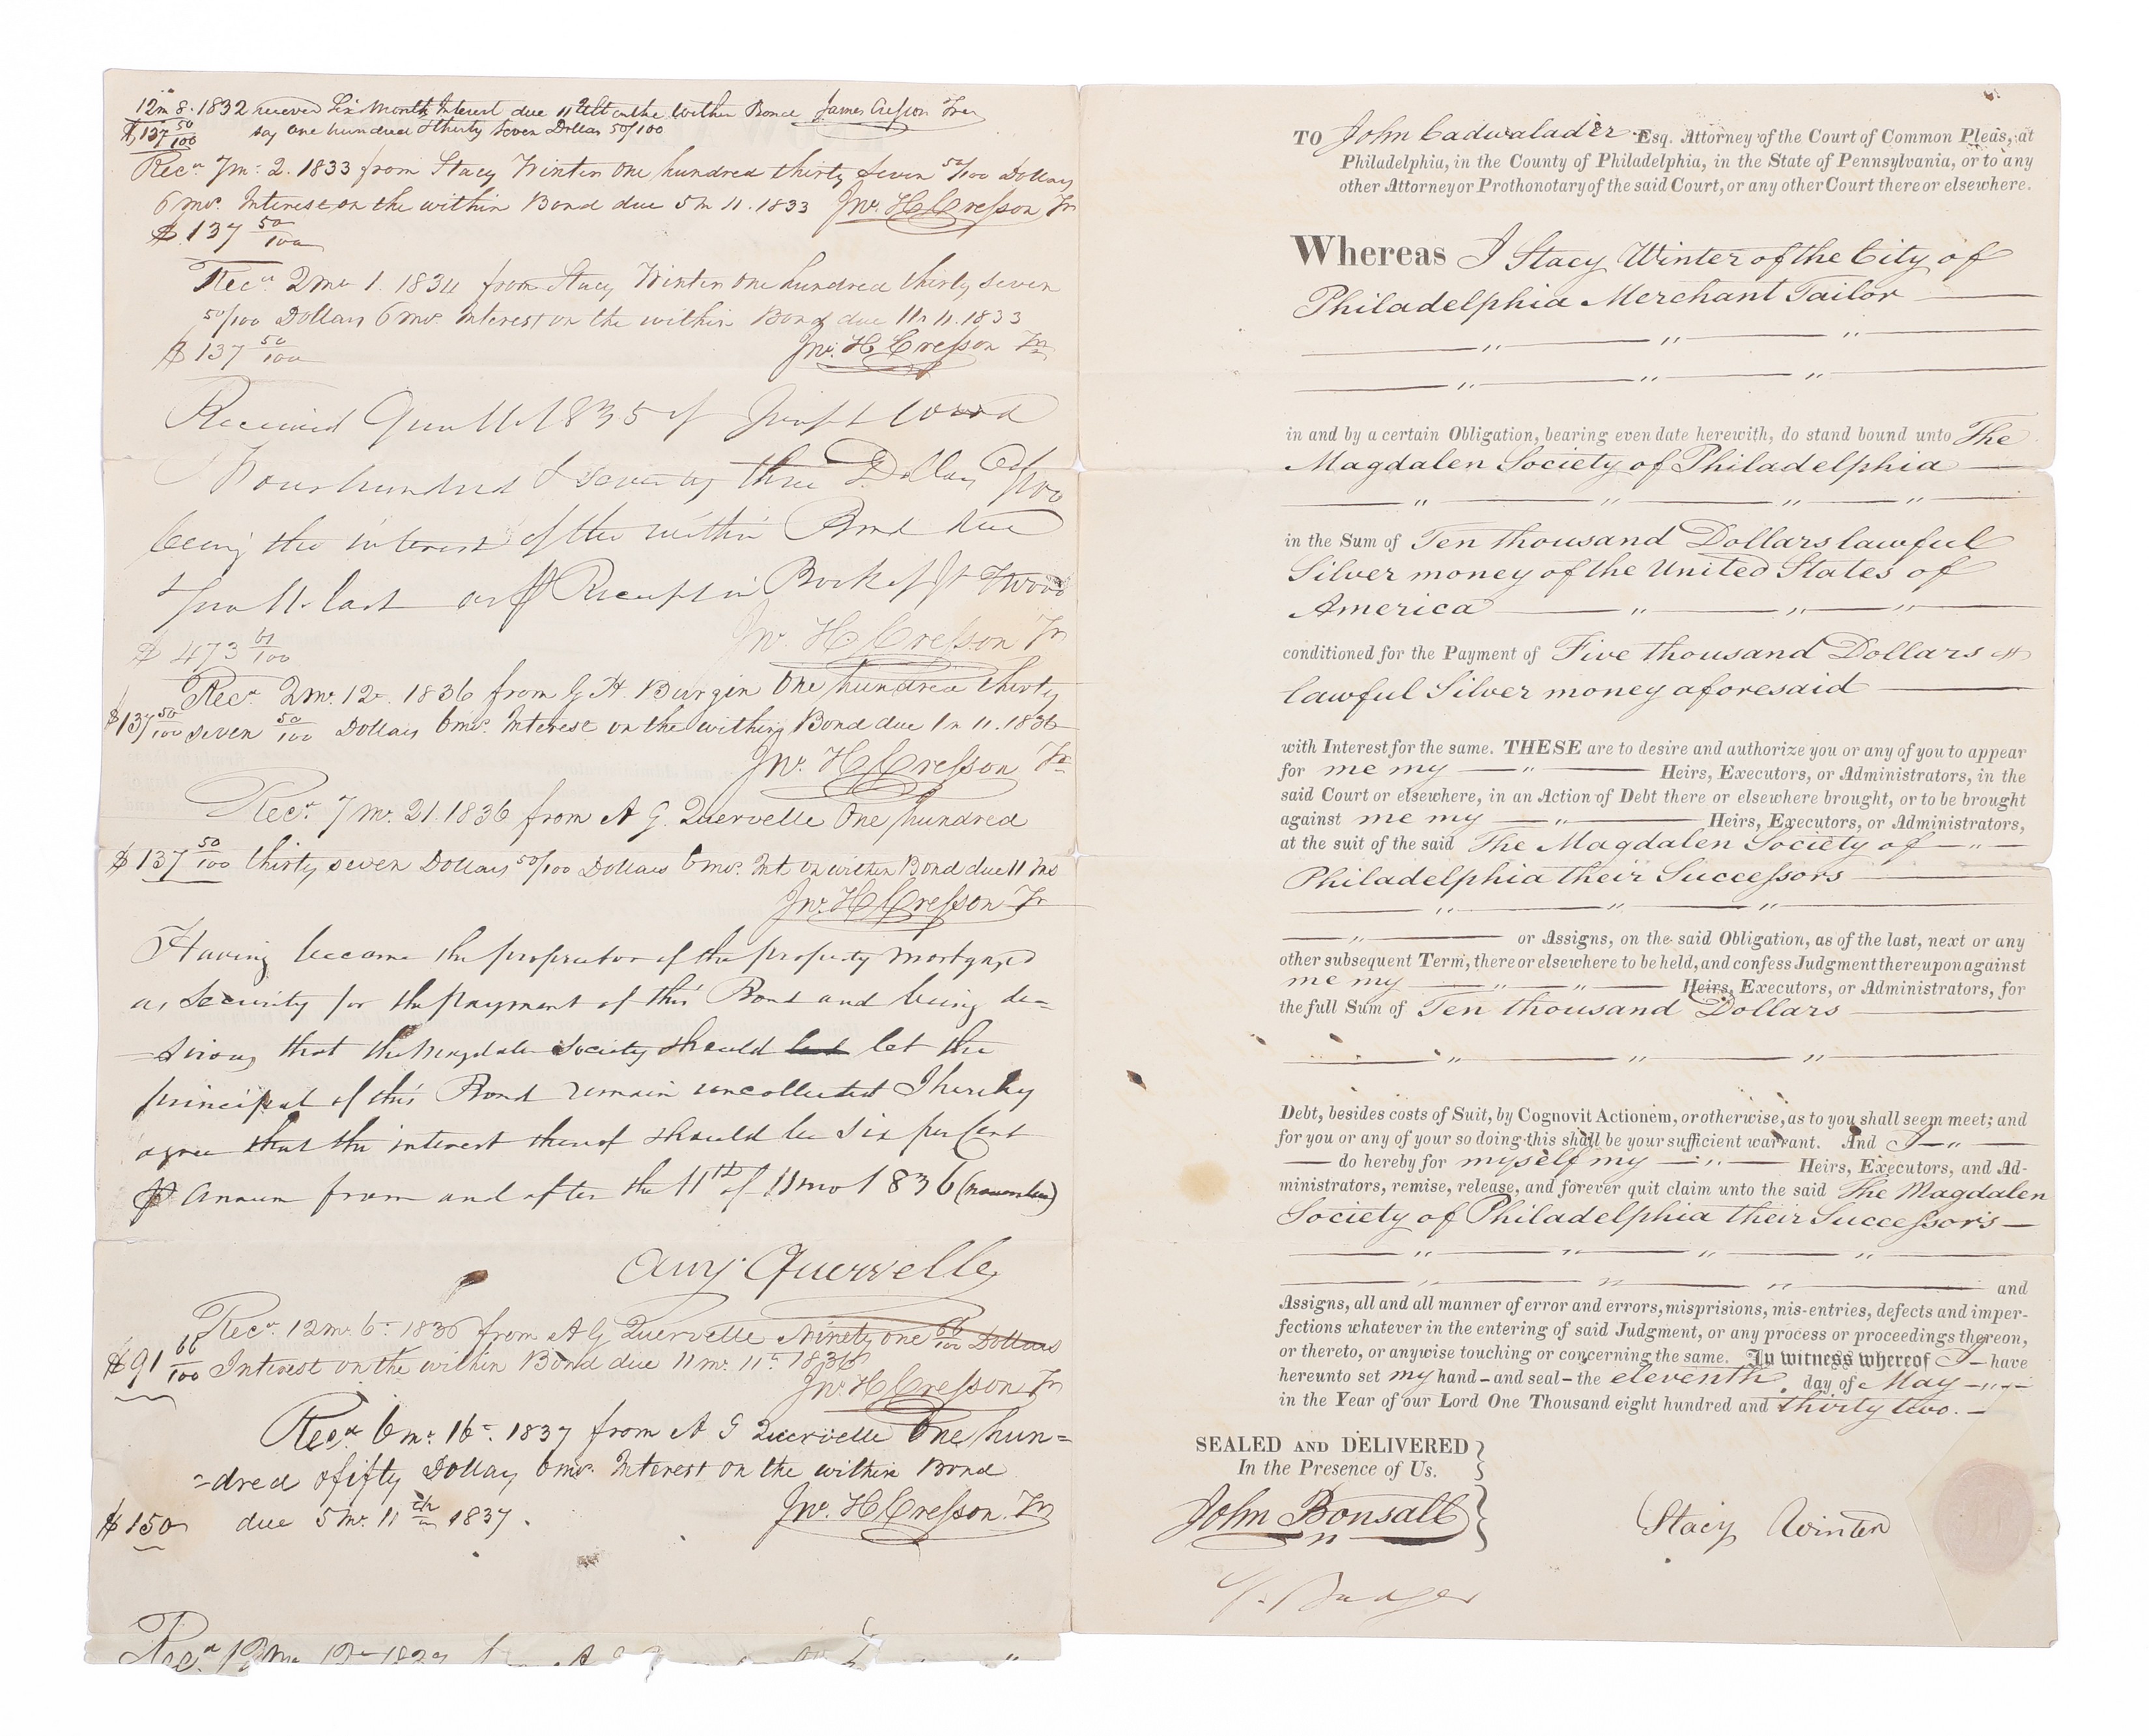 12m 8. 1832 received Six Months Interest due 11 Ult on the within Bond James Cresson Trea
$137 50/100 say One hundred & thirty Seven Dollars 50/100
Recd 7mo 2. 1833 from Stacy Winter One hundred thirty Seven 50/100 Dollars
6 mos. Interest on the within Bond due 5m 11. 1833 Jno. H. Cresson Tr
$137 50/100
Recd 2mo 1. 1834 from Stacy Winter One hundred thirty seven
50/100 Dollars 6 mos. Interest on the within Bond due 11m 11. 1833
$137 50/100 Jno. H. Cresson Tr
Received 1835 of Wood
Four hundred & seventy three Dollars /100
being the interest of the within Bond due
last as Receipt in Book of Wood
Jno. H. Cresson Tr
$473 /100
Recd 2mo. 12. 1836 from G. H. Burgin One hundred thirty
$137 50/100 seven 50/100 Dollars 6mos. Interest on the within Bond due 11. 1836
Jno. H. Cresson Tr
Recd. 7mo. 21. 1836 from A G. Quervelle One hundred
$137 50/100 thirty seven Dollars 50/100 Dollars 6mos. Int on within Bond due 11
Jno. H. Cresson Tr
Having become the proprietor of the property mortgaged
as Security for the payment of this Bond and being de=
=sirous that the Magdalen Society should let let the
principal of this Bond remain uncollected I hereby
agree that the interest thereof should be six per Cent
⅌ Annum from and after the 11th of 11mo 1836 (november)
Quervelle
Recd. 12mo. 6. 1836 from A G Quervelle Ninety one 66/100 Dollars
$91 66/100 Interest on the within Bond due 11mo. 11. 1836
Jno. H. Cresson Tr
Recd. 6mo. 16. 1837 from A G Quervelle One hun=
=dred & fifty Dollars 6mos. Interest on the within Bond
$150 due 5mo. 11th 1837. Jno. H. Cresson Tr
Recd
TO John Cadwalader Esq. Attorney of the Court of Common Pleas, at
Philadelphia, in the County of Philadelphia, in the State of Pennsylvania, or to any
other Attorney or Prothonotary of the said Court, or any other Court there or elsewhere.
Whereas I Stacy Winter of the City of
Philadelphia Merchant Tailor
in and by a certain Obligation, bearing even date herewith, do stand bound unto The
Magdalen Society of Philadelphia
in the Sum of Ten thousand Dollars lawful
Silver money of the United States of
America
conditioned for the Payment of Five thousand Dollars
lawful Silver money aforesaid
with Interest for the same. THESE are to desire and authorize you or any of you to appear
for me my Heirs, Executors, or Administrators, in the
said Court or elsewhere, in an Action of Debt there or elsewhere brought, or to be brought
against me my Heirs, Executors, or Administrators,
at the suit of the said The Magdalen Society of
Philadelphia their Successors
or Assigns, on the said Obligation, as of the last, next or any
other subsequent Term, there or elsewhere to be held, and confess Judgment thereupon against
me my Heirs, Executors, or Administrators, for
the full Sum of Ten thousand Dollars
Debt, besides costs of Suit, by Cognovit Actionem, or otherwise, as to you shall seem meet; and
for you or any of your so doing this shall be your sufficient warrant. And I
do hereby for myself my Heirs, Executors, and Ad-
ministrators, remise, release, and forever quit claim unto the said The Magdalen
Society of Philadelphia their Successors
and
Assigns, all and all manner of error and errors, misprisions, mis-entries, defects and imper-
fections whatever in the entering of said Judgment, or any process or proceedings thereon,
or thereto, or anywise touching or concerning the same. In witness whereof I have
hereunto set my hand and seal the eleventh day of May
in the Year of our Lord One Thousand eight hundred and thirty two.
SEALED AND DELIVERED
In the Presence of Us.
John Bonsall
Stacy Winter
Badger